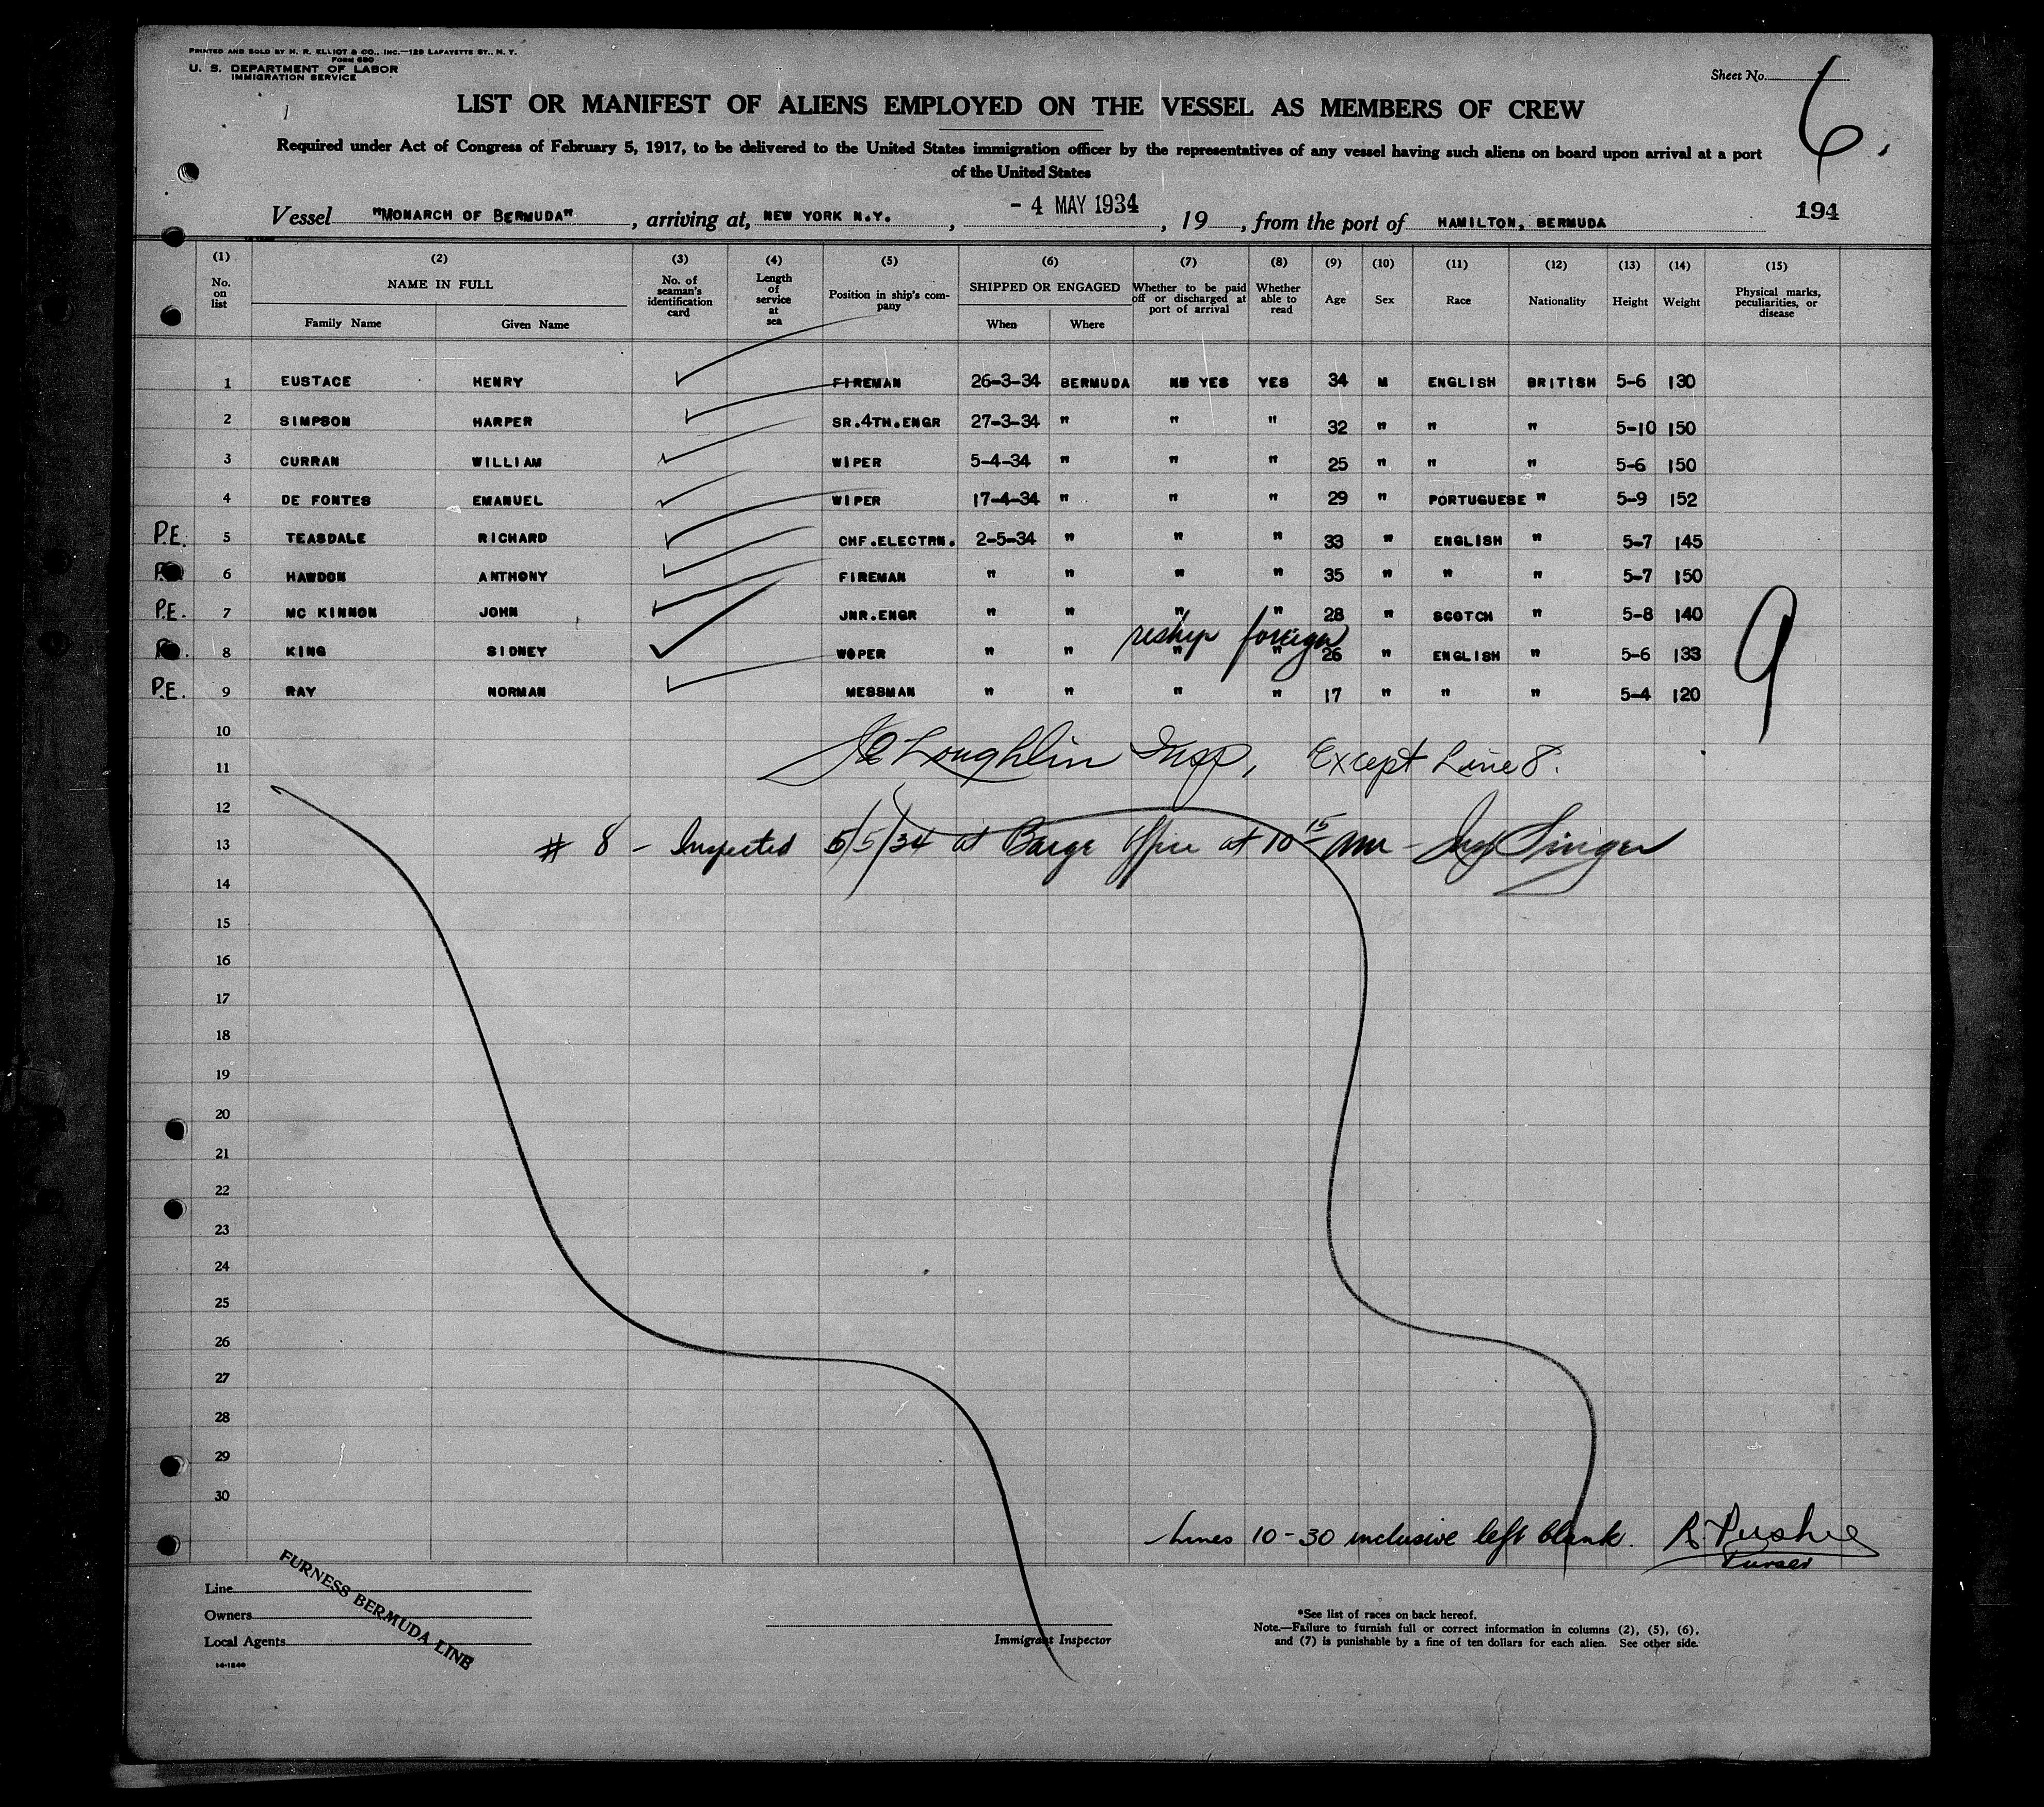 PRINTED AND SOLD BY H. R. ELLIOT & CO., INC.—129 LAFAYETTE ST., N. Y.
FORM 680
U. S. DEPARTMENT OF LABOR
IMMIGRATION SERVICE
Sheet No. 6.
LIST OR MANIFEST OF ALIENS EMPLOYED ON THE VESSEL AS MEMBERS OF CREW
Required under Act of Congress of February 5, 1917, to be delivered to the United States immigration officer by the representatives of any vessel having such aliens on board upon arrival at a port
of the United States
Vessel "MONARCH OF BERMUDA", arriving at, NEW YORK N.Y., - 4 MAY 1934, 19, from the port of HAMILTON, BERMUDA 194
(1) No. on list (2) NAME IN FULL Family Name Given Name (3) No. of seaman's identification card (4) Length of service at sea (5) Position in ship's company (6) SHIPPED OR ENGAGED When Where (7) Whether to be paid off or discharged at port of arrival (8) Whether able to read (9) Age (10) Sex (11) Race (12) Nationality (13) Height (14) Weight (15) Physical marks, peculiarities, or disease
1 EUSTACE HENRY FIREMAN 26-3-34 BERMUDA YES YES 34 M ENGLISH BRITISH 5-6 130
2 SIMPSON HARPER SR.4TH.ENGR 27-3-34 " " " 32 " " " 5-10 150
3 CURRAN WILLIAM WIPER 5-4-34 " " " 25 " " " 5-6 150
4 DE FONTES EMANUEL WIPER 17-4-34 " " " 29 " PORTUGUESE " 5-9 152
P.E. 5 TEASDALE RICHARD CHF.ELECTRN. 2-5-34 " " " 33 " ENGLISH " 5-7 145
6 HAWDON ANTHONY FIREMAN " " " " 35 " " " 5-7 150
P.E. 7 MC KINNON JOHN JNR.ENGR " " " " 28 " SCOTCH " 5-8 140
reship foreign
8 KING SIDNEY WOPER " " " " 26 " ENGLISH " 5-6 133
9
P.E. 9 RAY NORMAN MESSMAN " " " " 17 " " " 5-4 120
10
McLoughlin Insp, Except Line 8.
11
12
13 # 8 - Inspected 5/5/34 at Barge Office at 10 15 AM - Singer
14
15
16
17
18
19
20
21
22
23
24
25
26
27
28
29
30
Lines 10-30 inclusive left blank. Purser
Line
Owners
Local Agents
FURNESS BERMUDA LINE
Immigrant Inspector
*See list of races on back hereof.
Note.—Failure to furnish full or correct information in columns (2), (5), (6),
and (7) is punishable by a fine of ten dollars for each alien. See other side.